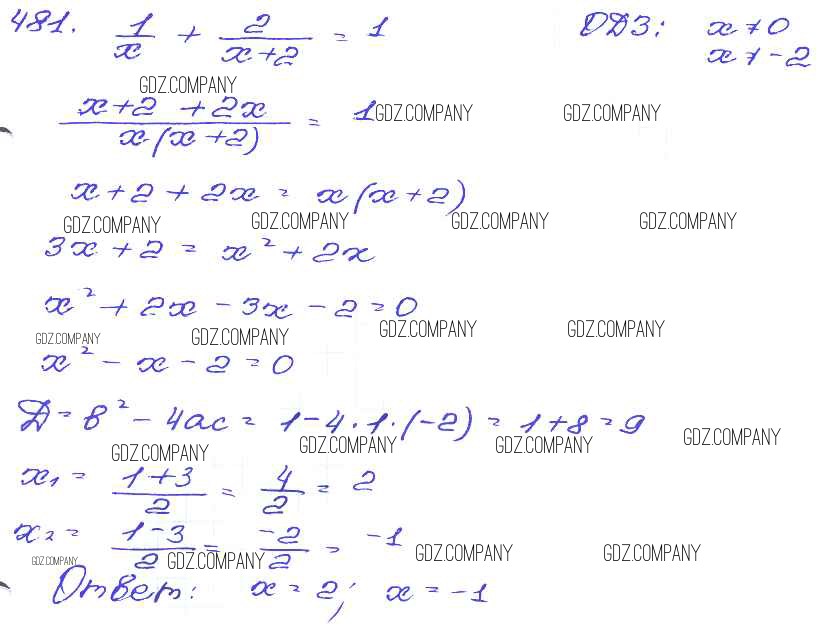 481. 1/x + 2/(x+2) = 1 ОДЗ: x ≠ 0
x ≠ -2
GDZ.COMPANY
(x+2 + 2x)/(x(x+2)) = 1 GDZ.COMPANY GDZ.COMPANY
x+2+2x = x(x+2)
GDZ.COMPANY GDZ.COMPANY GDZ.COMPANY GDZ.COMPANY
3x+2 = x²+2x
x²+2x-3x-2=0
GDZ.COMPANY GDZ.COMPANY GDZ.COMPANY GDZ.COMPANY
x²-x-2=0
Д=в²-4ас= 1-4·1·(-2)= 1+8=9
GDZ.COMPANY GDZ.COMPANY GDZ.COMPANY GDZ.COMPANY
x₁ = (1+3)/2 = 4/2 = 2
x₂ = (1-3)/2 = -2/2 = -1
GDZ.COMPANY GDZ.COMPANY GDZ.COMPANY GDZ.COMPANY
Ответ: x=2; x=-1